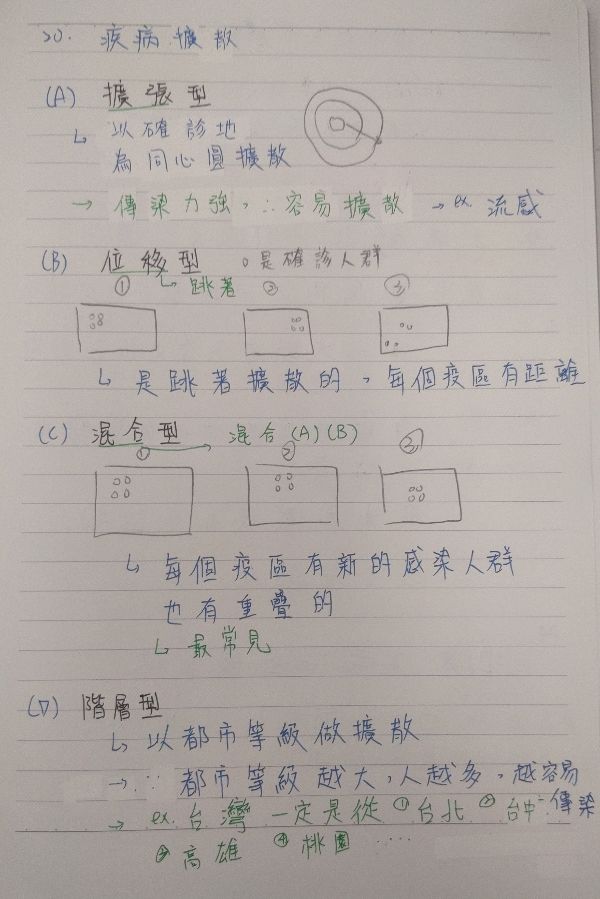 20. 疾病擴散
(A) 擴張型
↳ 以確診地
為同心圓擴散
→ 傳染力強，∴容易擴散 → ex. 流感
(B) 位移型 ○是確診人群
↳ 跳著
① ② ③
↳ 是跳著擴散的，每個疫區有距離
(C) 混合型 → 混合(A)(B)
① ② ③
↳ 每個疫區有新的感染人群
也有重疊的
↳ 最常見
(D) 階層型
↳ 以都市等級做擴散
→ ∵ 都市等級越大，人越多，越容易
傳染
→ ex. 台灣一定是從 ①台北 ②台中
③高雄 ④桃園 ……